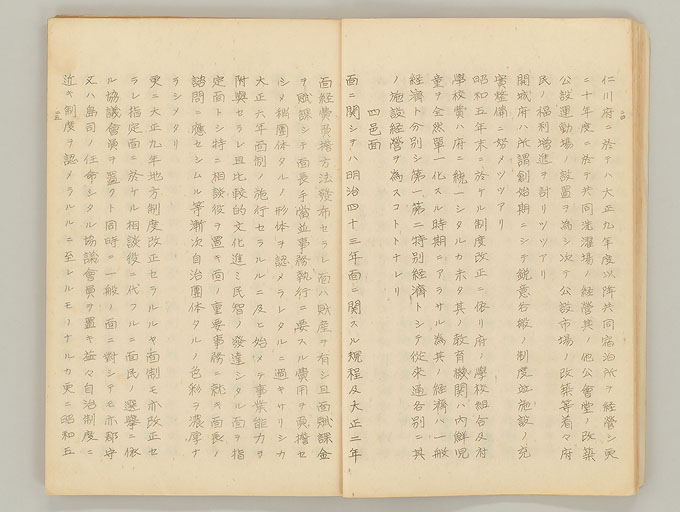 仁川府ニ於テハ大正九年度以降共同宿泊所ヲ経營シ更
ニ十年度ニ於テ共同洗濯場ノ経營其ノ他公會堂ノ改築
公設運動場ノ設置ヲ為シ次テ公設市場ノ改築等着々府
民ノ福利増進ヲ計リツツアリ
開城府ハ所謂創始期ニシテ鋭意各般ノ制度竝施設ノ充
實整備ニ努メツツアリ
昭和五年末ニ於ケル制度改正ニ依リ府ノ學校組合及府
學校費ハ府ニ統一シタルカホタ其ノ教育機関ハ内鮮児
童ヲ全然單一化スル時期ニアラサル為其ノ経濟ハ一般
経濟ト分別シ第一、第二特別経濟トシテ従来通各別ニ其
ノ施設経營ヲ為スコトトナレリ
四邑面
面ニ関シテハ明治四十三年面ニ関スル規程及大正二年
面経費負擔方法發布セラレ面ハ財産ヲ有シ且面賦課金
ヲ賦課シテ面長手當並事務執行ニ要スル費用ヲ負擔セ
シメ稍團体タルノ形体ヲ認メラレタルニ過キサリシカ
大正六年面制ノ施行セラルルニ及ヒ始メテ事業能力ヲ
附與セラレ且比較的文化進ミ民智ノ發達シタル面ヲ指
定面トシ特ニ相談役ヲ置キ面ノ重要事務ニ就キ面長ノ
諮問ニ應セシムル等漸次自治團体タルノ色彩ヲ濃厚ナ
ラシメタリ
更ニ大正九年地方制度改正セラルルヤ面制モ亦改正セ
ラレ指定面ニ於ケル相談役ニ代フルニ面民ノ選擧ニ依
ル協議會員ヲ置クト同時ニ一般ノ面ニ對シテモ亦郡守
又ハ島司ノ任命シタル協議會員ヲ置キ益々自治制度ニ
近キ制度ヲ認メラルルニ至レルモノナルカ更ニ昭和五